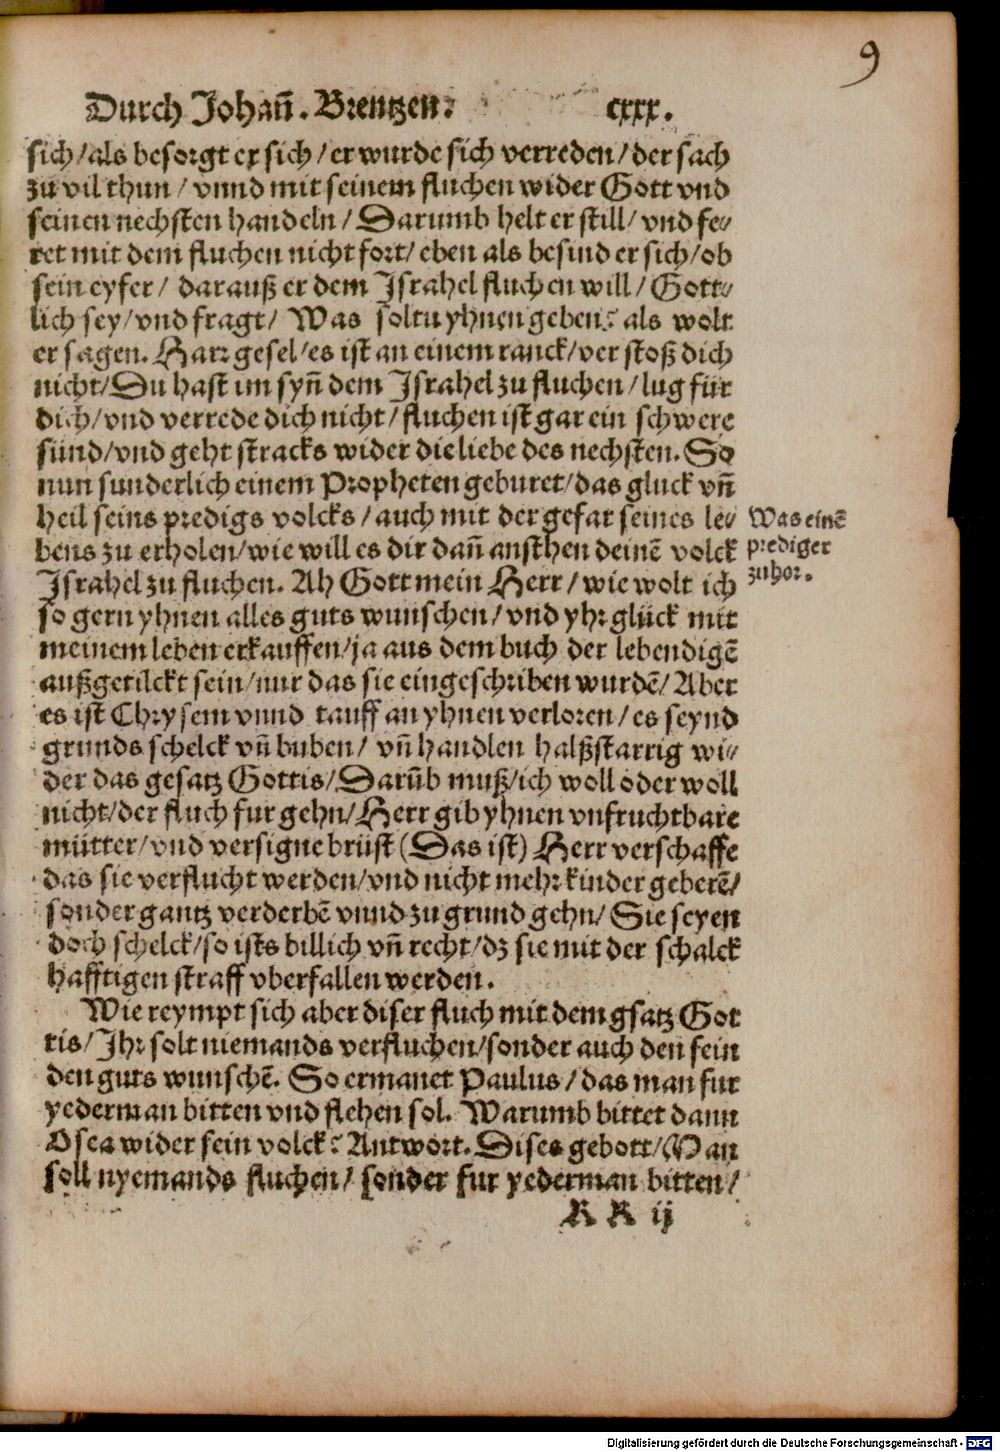 9
Durch Johañ. Brentzen. cxxx.
sich/als besorgt er sich/er wurde sich verreden/der sach
zu vil thun/vnnd mit seinem fluchen wider Gott vnd
seinen nechsten handeln/Darumb helt er still/vnd fe⸗
ret mit dem fluchen nicht fort/eben als besind er sich/ob
sein eyfer/darauß er dem Israhel fluchen will/Gott⸗
lich sey/vnd fragt/Was soltu yhnen geben? als wolt
er sagen. Harr gesel/es ist an einem ranck/verstoß dich
nicht/Du hast im syñ dem Israhel zu fluchen/lug für
dich/vnd verrede dich nicht/fluchen ist gar ein schwere
sünd/vnd geht stracks wider die liebe des nechsten. So
nun sunderlich einem Propheten geburet/das gluck vñ
heil seins predigs volcks/auch mit der gefar seines le⸗
bens zu erholen/wie will es dir dañ ansthen deinē volck
Israhel zu fluchen. Ah Gott mein Herr/wie wolt ich
so gern yhnen alles guts wunschen/vnd yhr glück mit
meinem leben erkauffen/ja aus dem buch der lebendigē
außgetilckt sein/nur das sie eingeschriben wurdē/Aber
es ist Chrysem vnnd tauff an yhnen verloren/es seynd
grunds schelck vñ buben/vñ handlen halßstarrig wi⸗
der das gesatz Gottis/Darūb muß/ich woll oder woll
nicht/der fluch fur gehn/Herr gib yhnen vnfruchtbare
mütter/vnd versigne brüst (Das ist) Herr verschaffe
das sie verflucht werden/vnd nicht mehr kinder geberē/
sonder gantz verderbē vnnd zu grund gehn/Sie seyen
doch schelck/so ists billich vñ recht/dz sie mit der schalck
hafftigen straff vberfallen werden.
Wie reympt sich aber diser fluch mit dem gsatz Got
tis/Ihr solt niemands verfluchen/sonder auch den fein
den guts wunschē. So ermanet Paulus/das man fur
yederman bitten vnd flehen sol. Warumb bittet dann
Osea wider sein volck? Antwort. Dises gebott/Man
soll nyemands fluchen/sonder fur yederman bitten/
R R ij
Was einē
prediger
zuhor.
Digitalisierung gefördert durch die Deutsche Forschungsgemeinschaft - DFG